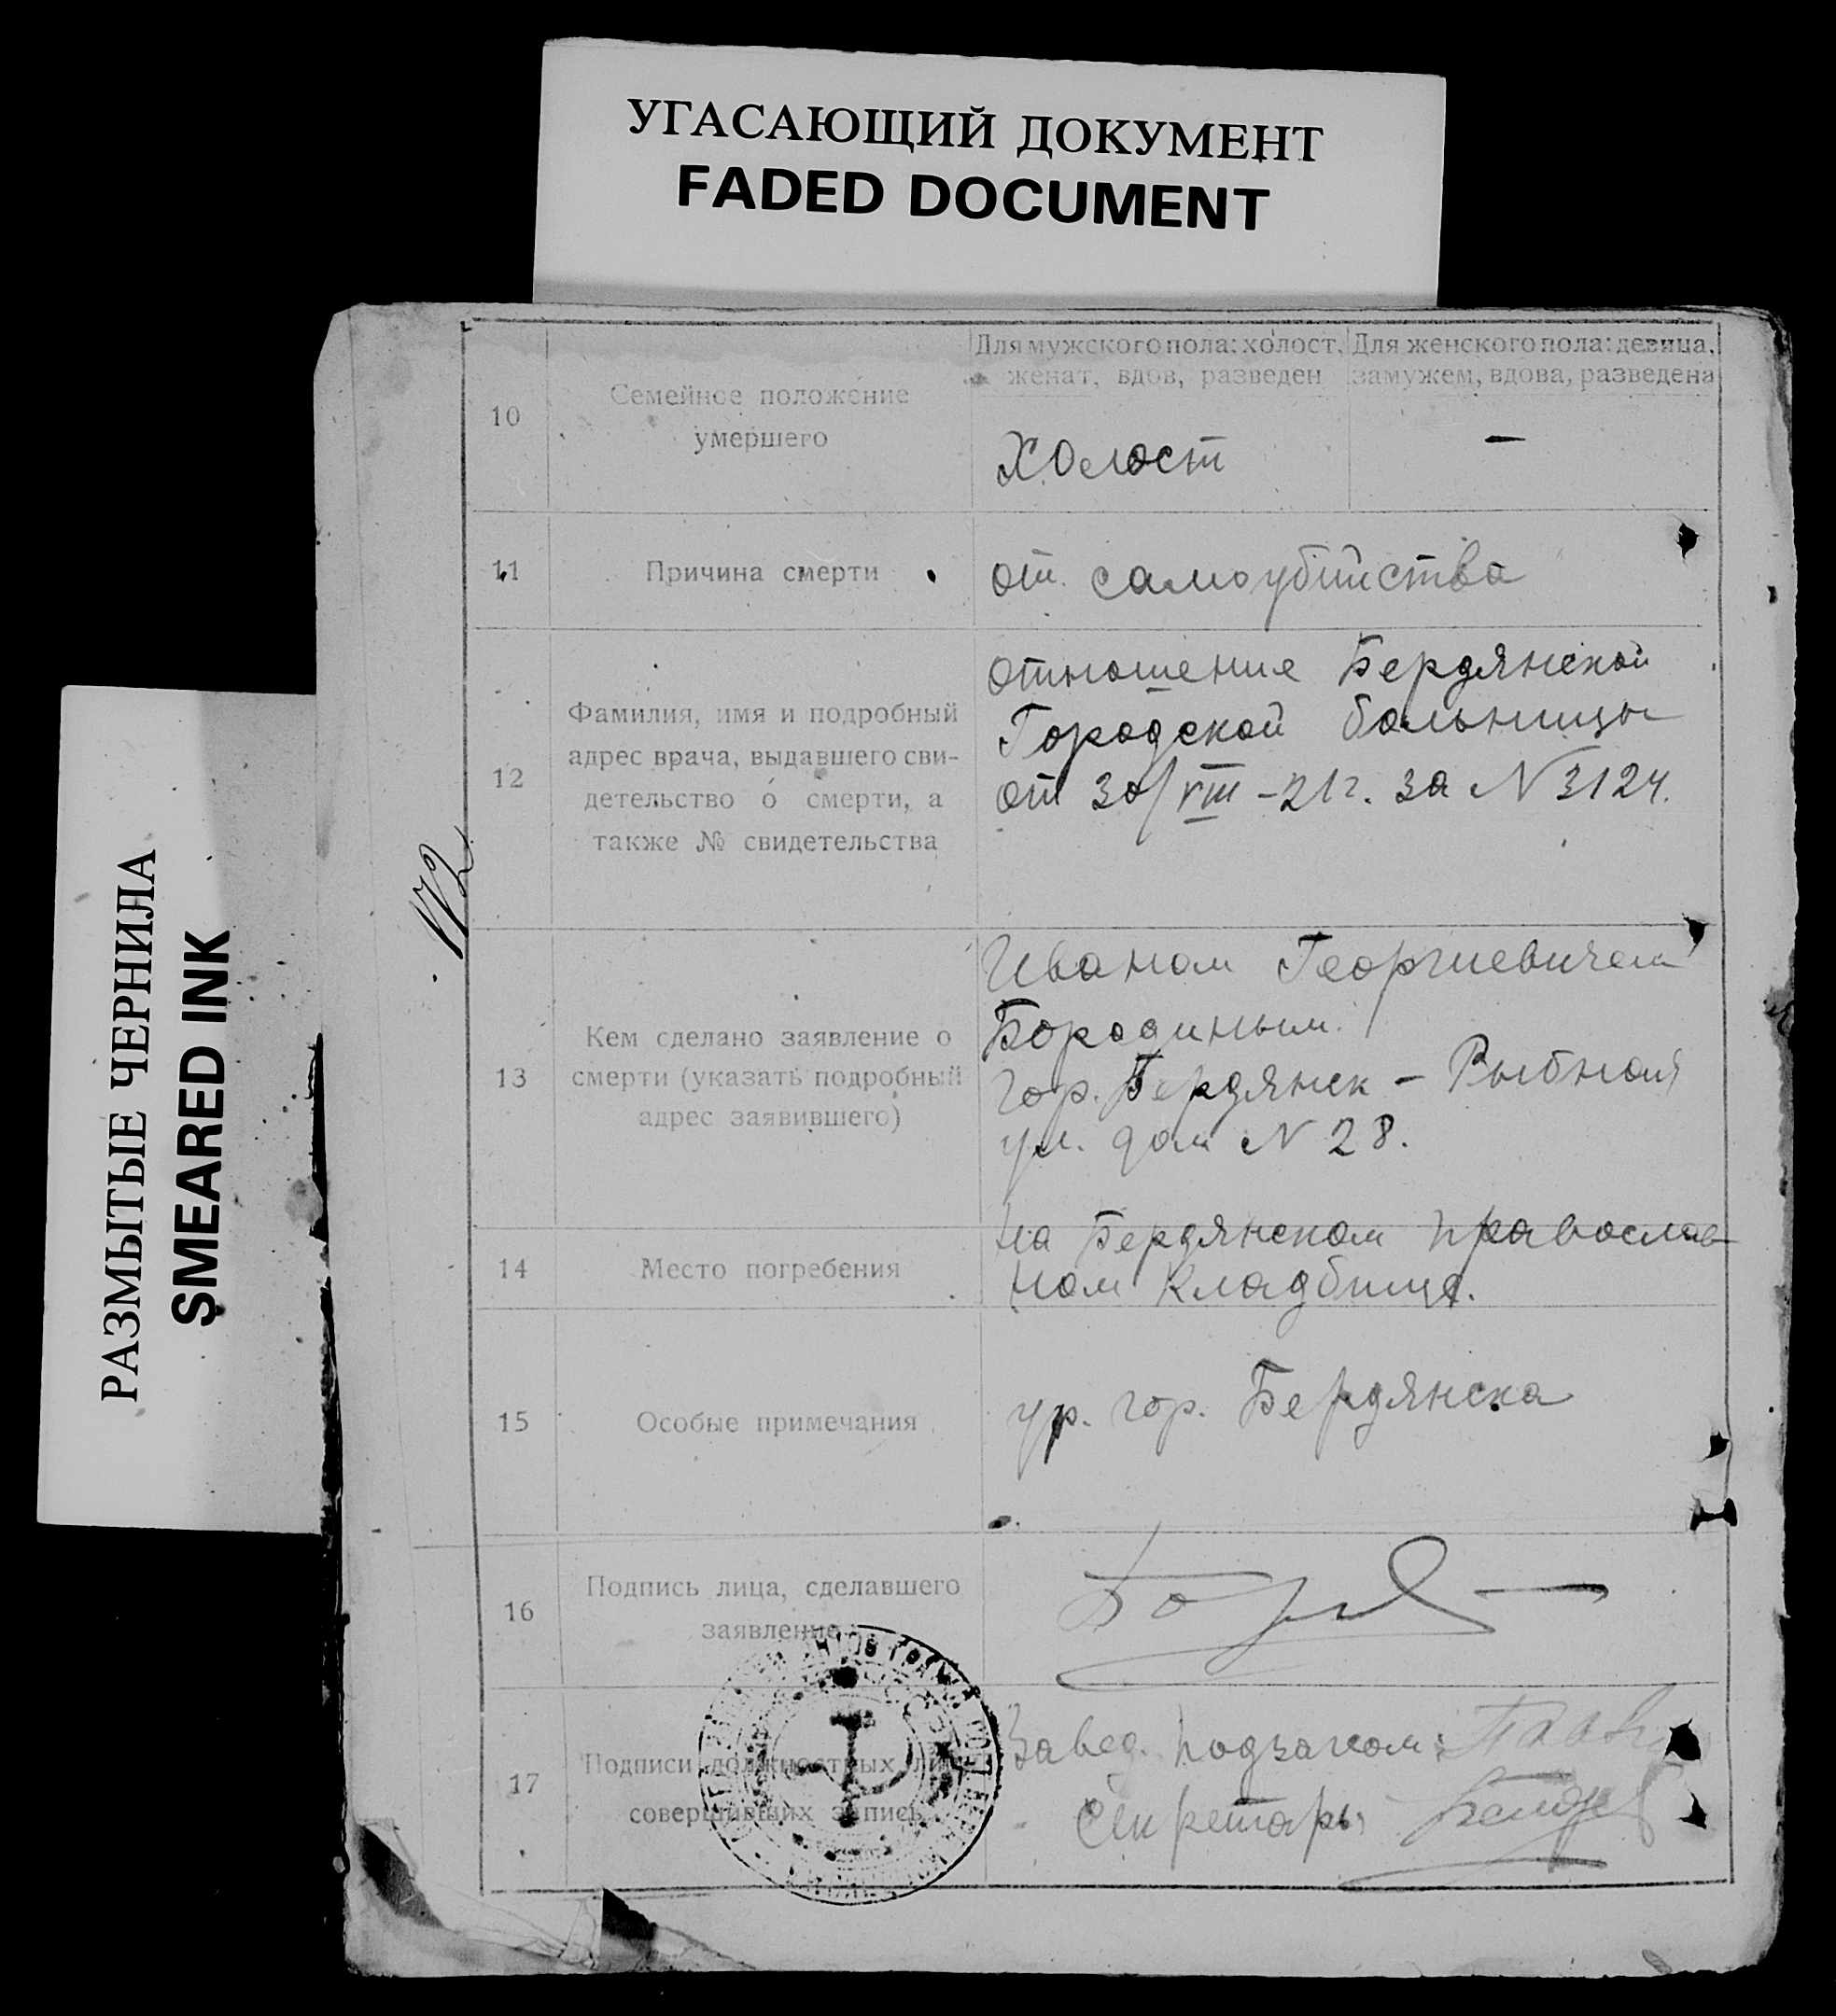 УГАСАЮЩИЙ ДОКУМЕНТ
FADED DOCUMENT
РАЗМЫТЫЕ ЧЕРНИЛА
SMEARED INK
10
Семейное положение
умершего
Для мужского пола: холост,
женат, вдов, разведен
Для женского пола: девица,
замужем, вдова, разведена
Холост
—
11
Причина смерти
от самоубийства
12
Фамилия, имя и подробный
адрес врача, выдавшего сви-
детельство о смерти, а
также № свидетельства
отношение Бердянской
Городской больницы
от 30/VIII-21г. за N 3124.
13
Кем сделано заявление о
смерти (указать подробный
адрес заявившего)
Иваном Георгиевичем
Бородиным.
гор. Бердянск – Рыбной
ул. дом N 28.
14
Место погребения
на Бердянском православ
ном кладбище.
15
Особые примечания
ур. гор. Бердянска
16
Подпись лица, сделавшего
заявление
17
Подписи должностных лиц,
совершивших запись
Завед. подзагсом:
Секретарь